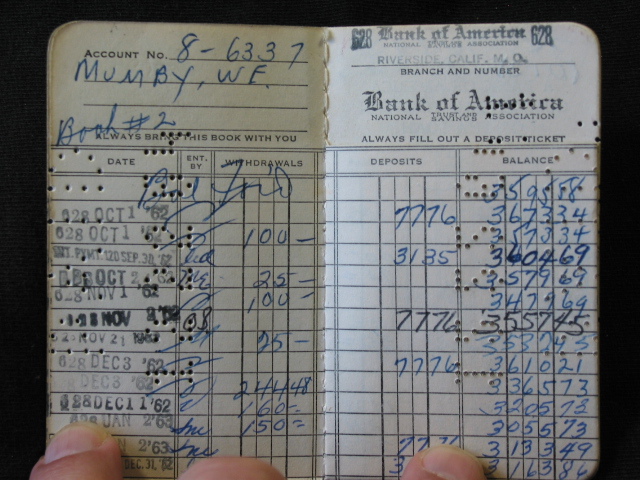 ACCOUNT No. 8-6337
MUMBY, W.F.
Book #2
ALWAYS BRING THIS BOOK WITH YOU
628 Bank of America 628
NATIONAL TRUST AND SAVINGS ASSOCIATION
RIVERSIDE, CALIF. M. O.
BRANCH AND NUMBER
Bank of America
NATIONAL TRUST AND SAVINGS ASSOCIATION
ALWAYS FILL OUT A DEPOSIT TICKET
DATE ENT. BY WITHDRAWALS DEPOSITS BALANCE
Bal Fo'd 359558
628 OCT 1 '62 7776 367334
628 OCT 1 '62 100- 357334
INT. PYMT. 120 SEP. 30, '62 3135 360469
OCT 2 '62 25- 357969
628 NOV 1 '62 100- 347969
NOV 2 '62 7776 355745
NOV 21 25- 353245
628 DEC 3 '62 7776 361021
DEC 3 '62 24448 336573
628 DEC 11 '62 160- 320573
628 JAN 2 '63 150- 305573
JAN 2 '63 7776 313349
DEC. 31, '62 316386